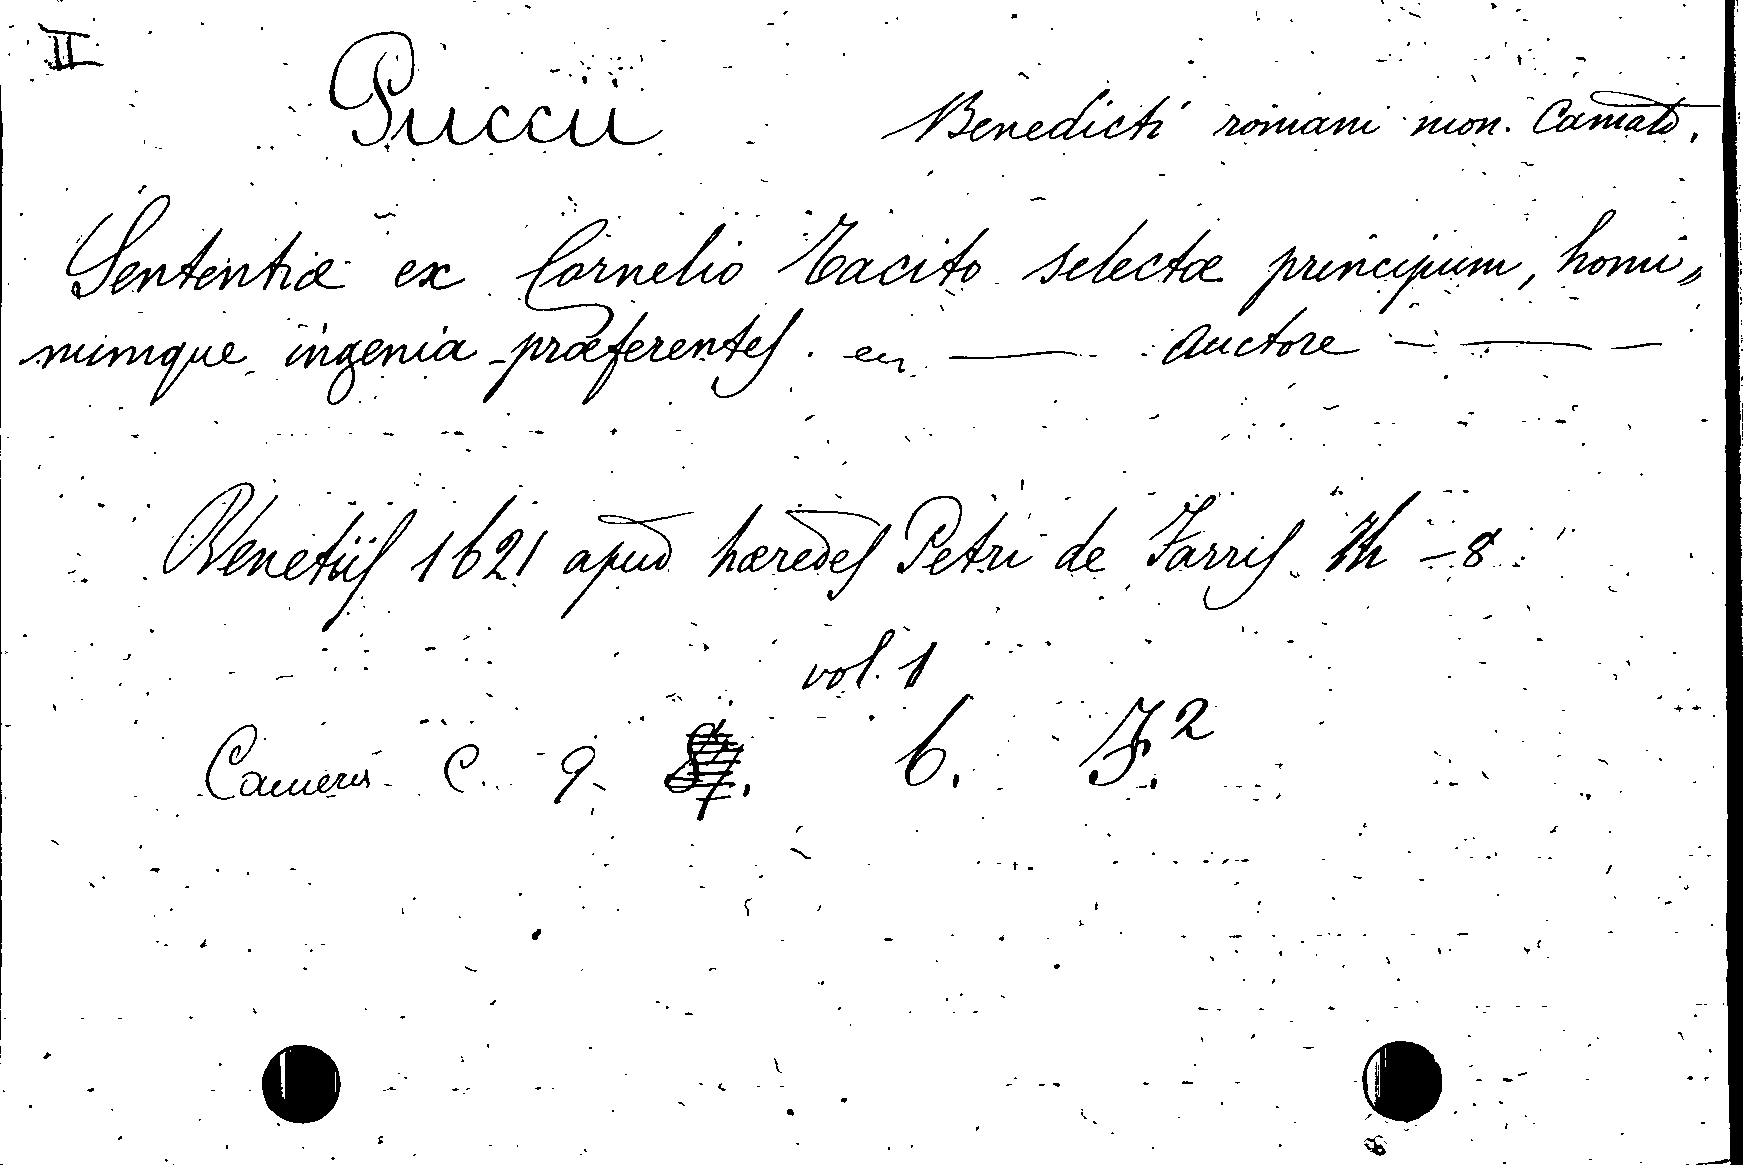 II
Puccii Benedicti romani mon. Camald.
Sententiæ ex Cornelio Tacito selectæ principum, homi„
numque ingenia præferentes. — auctore — — —
Venetiis 1621 apud hæredes Petri de Farris. in – 8
vol. 1
Camera C. 9. 6. F.²